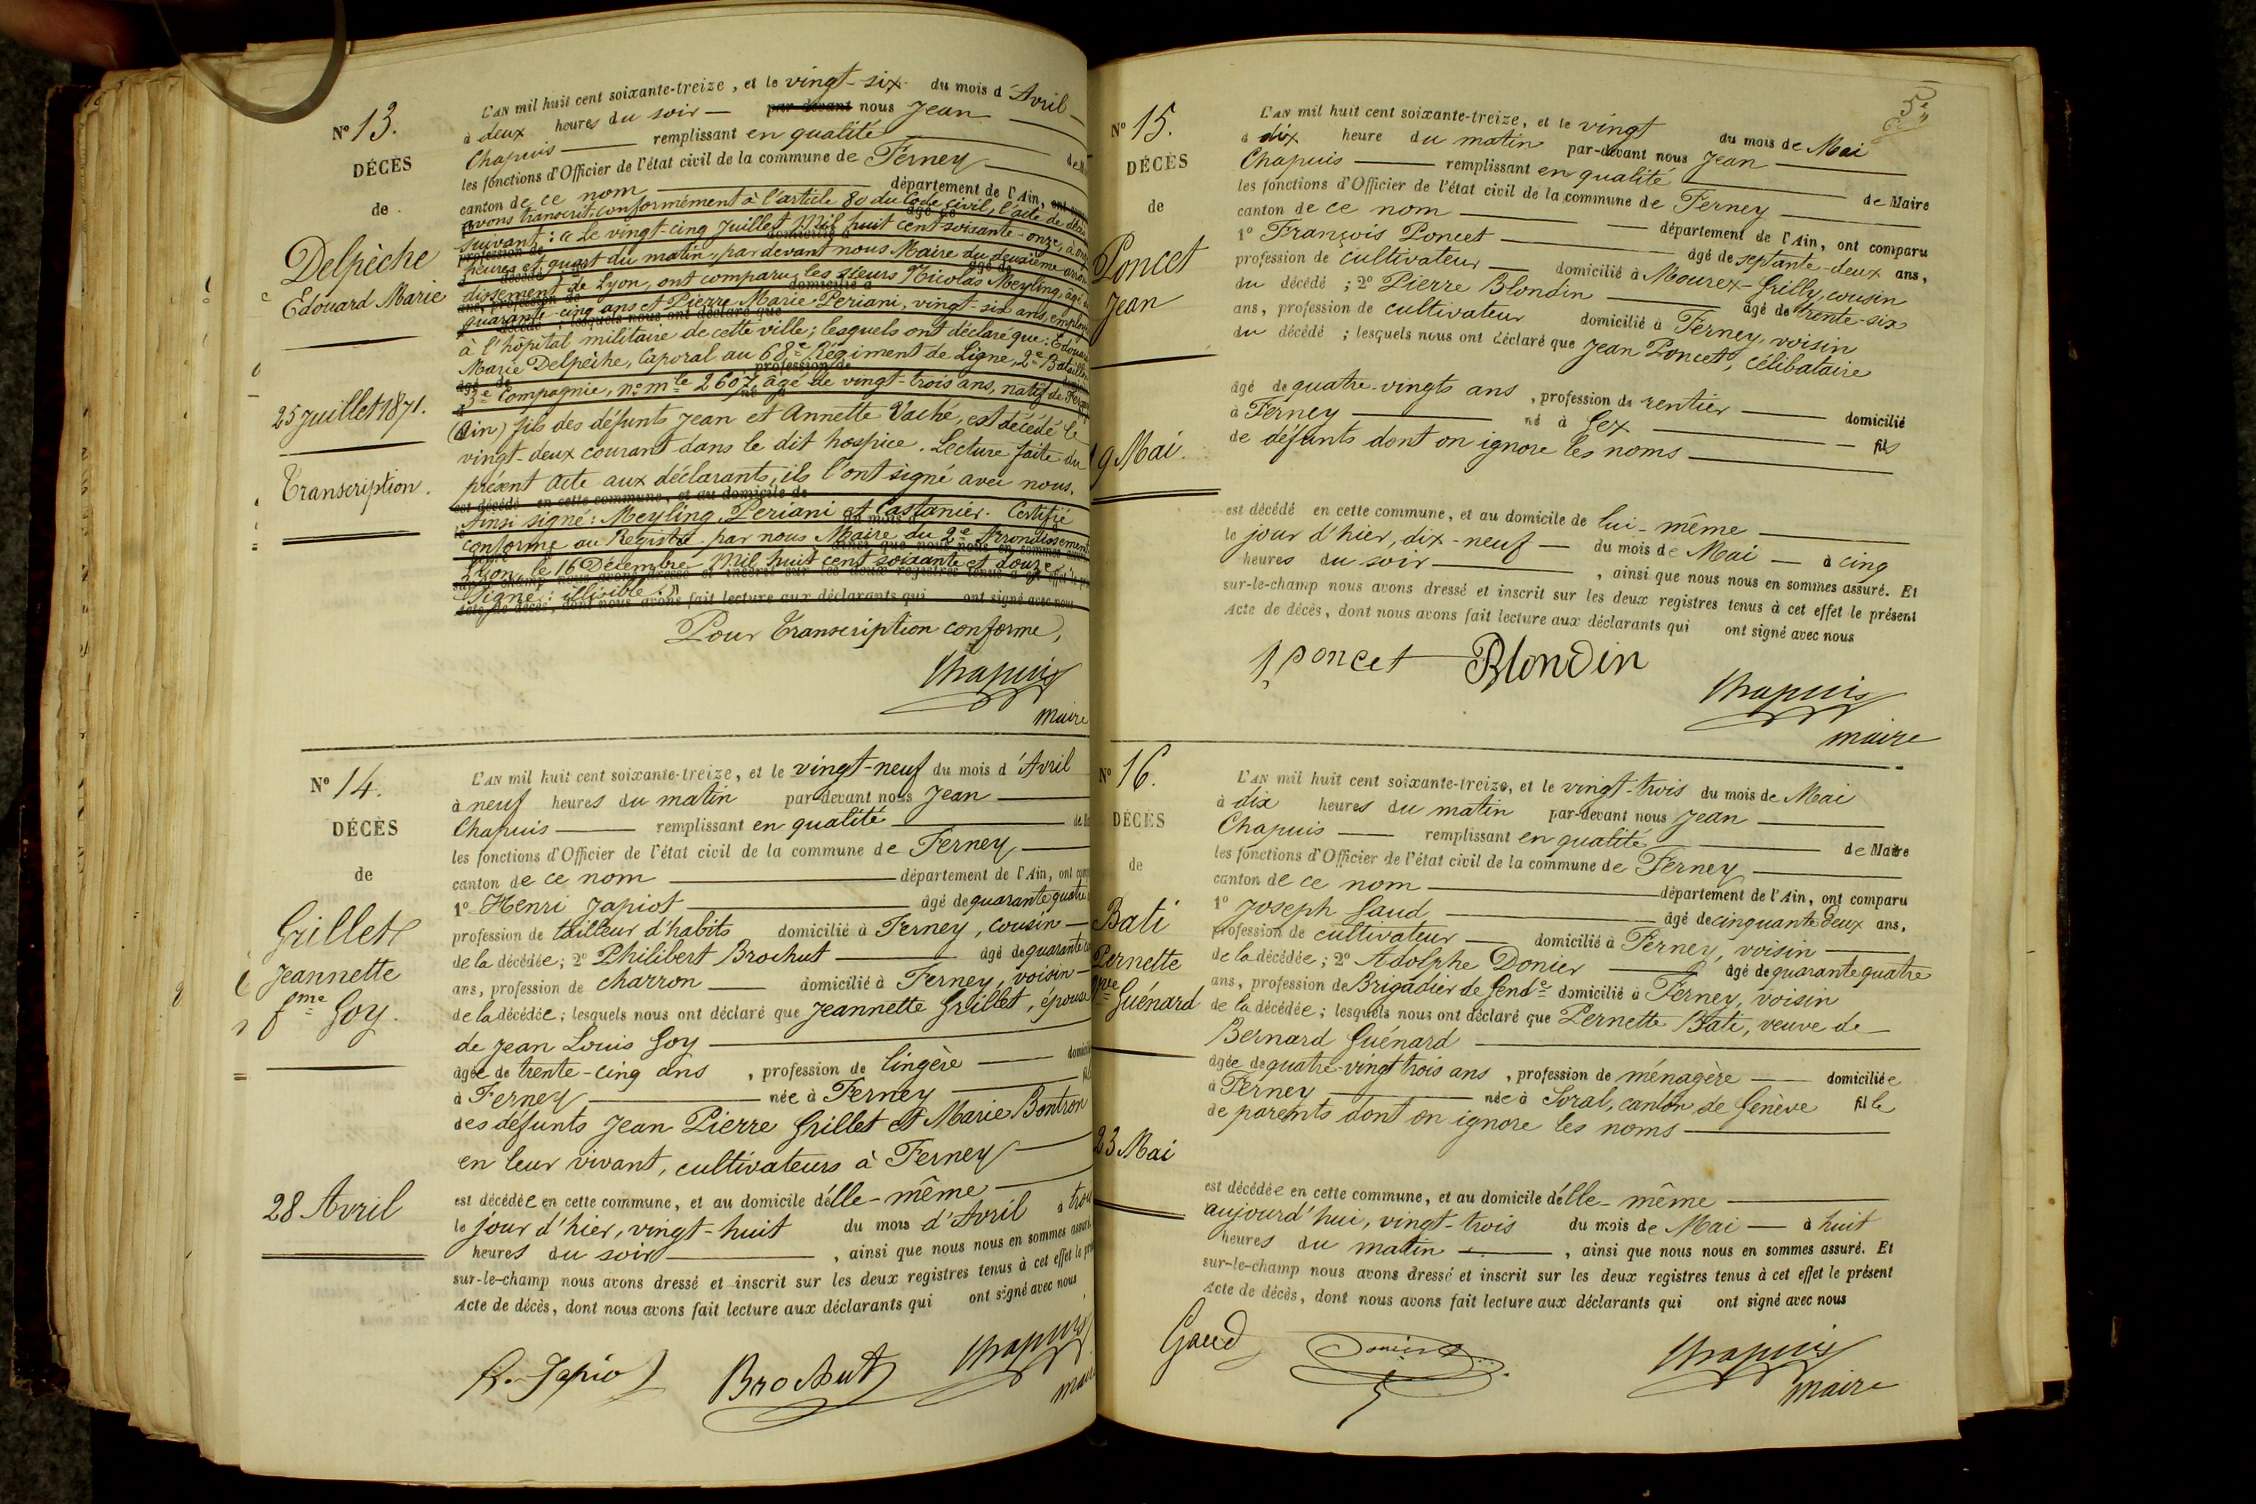 No 13.
DÉCÈS
de
Delpèche
Edouard Marie
25 Juillet 1871.
Transcription.
L'AN mil huit cent soixante-treize, et le vingt-six du mois d'Avril
à deux heures du soir par devant nous Jean
Chapuis remplissant en qualité de
les fonctions d'Officier de l'état civil de la commune de Ferney
canton de ce nom département de l'Ain,
avons transcrit conformément à l'article 80 du Code civil, l'acte de décès
suivant : « Le vingt-cinq Juillet Mil huit cent soixante-onze, à onze
heures et quart du matin, par devant nous Maire du deuxième arron
dissement de Lyon, ont comparu les sieurs Nicolas Meyling, âgé de
quarante-cinq ans et Pierre Marie Periani, vingt-six ans, employés
à l'hôpital militaire de cette ville ; lesquels ont déclaré que : Edouard
Marie Delpèche, Caporal au 68e Régiment de Ligne, 2e Bataillon
3e Compagnie, no mle 2607, âgé de vingt-trois ans, natif de Ferney
(Ain) fils des défunts Jean et Annette Vaché, est décédé le
vingt-deux courant dans le dit hospice. Lecture faite du
présent acte aux déclarants, ils l'ont signé avec nous.
Ainsi signé : Meyling, Periani et Castanier. Certifié
conforme au Registre par nous Maire du 2e Arrondissement
Lyon, le 16 Décembre Mil huit cent soixante et douze.
Signé : illisible. »
Pour Transcription conforme,
Chapuis
maire
No 14.
DÉCÈS
de
Grillet
Jeannette
fme Goy.
28 Avril
L'AN mil huit cent soixante-treize, et le vingt-neuf du mois d'Avril
à neuf heures du matin par-devant nous Jean
Chapuis remplissant en qualité
les fonctions d'Officier de l'état civil de la commune de Ferney
canton de ce nom département de l'Ain, ont
1o Henri Japiot âgé de quarante quatre
profession de tailleur d'habits domicilié à Ferney, cousin
de la décédée ; 2o Philibert Brochut âgé de quarante
ans, profession de charron domicilié à Ferney, voisin
de la décédée ; lesquels nous ont déclaré que Jeannette Grillet, épouse
de Jean Louis Goy
âgée de trente-cinq ans , profession de lingère
à Ferney née à Ferney
des défunts Jean Pierre Grillet et Marie Bontron
en leur vivant, cultivateurs à Ferney
est décédée en cette commune, et au domicile d'elle-même
le jour d'hier, vingt-huit du mois d'Avril à trois
heures du soir , ainsi que nous nous en sommes assuré.
sur-le-champ nous avons dressé et inscrit sur les deux registres tenus à cet effet le
Acte de décès, dont nous avons fait lecture aux déclarants qui ont signé avec nous
Brochut Chapuis
maire
5e
No 15.
DÉCÈS
de
Poncet
Jean
19 Mai.
L'AN mil huit cent soixante-treize, et le vingt du mois de Mai
à dix heure du matin par-devant nous Jean
Chapuis remplissant en qualité de Maire
les fonctions d'Officier de l'état civil de la commune de Ferney
canton de ce nom département de l'Ain, ont comparu
1o François Poncet âgé de septante-deux ans,
profession de cultivateur domicilié à Mourex-Grilly, cousin
du décédé ; 2o Pierre Blondin âgé de trente-six
ans, profession de cultivateur domicilié à Ferney, voisin
du décédé ; lesquels nous ont déclaré que Jean Poncet, célibataire
âgé de quatre-vingts ans , profession de rentier domicilié
à Ferney né à Gex fils
de défunts dont on ignore les noms
est décédé en cette commune, et au domicile de lui-même
le jour d'hier, dix-neuf du mois de Mai à cinq
heures du soir , ainsi que nous nous en sommes assuré. Et
sur-le-champ nous avons dressé et inscrit sur les deux registres tenus à cet effet le présent
Acte de décès, dont nous avons fait lecture aux déclarants qui ont signé avec nous
poncet Blondin
Chapuis
maire
No 16.
DÉCÈS
de
Bati
Pernette
Vve Guénard
23 Mai
L'AN mil huit cent soixante-treize, et le vingt-trois du mois de Mai
à dix heures du matin par-devant nous Jean
Chapuis remplissant en qualité de Maire
les fonctions d'Officier de l'état civil de la commune de Ferney
canton de ce nom département de l'Ain, ont comparu
1o Joseph Gaud âgé de cinquante deux ans,
profession de cultivateur domicilié à Ferney, voisin
de la décédée ; 2o Adolphe Donier âgé de quarante quatre
ans, profession de Brigadier de Gende domicilié à Ferney, voisin
de la décédée ; lesquels nous ont déclaré que Pernette Bati, veuve de
Bernard Guénard
âgée de quatre-vingt trois ans , profession de ménagère domiciliée
à Ferney née à Soral, canton de Genève fille
de parents dont on ignore les noms
est décédée en cette commune, et au domicile d'elle-même
aujourd'hui, vingt-trois du mois de Mai à huit
heures du matin , ainsi que nous nous en sommes assuré. Et
sur-le-champ nous avons dressé et inscrit sur les deux registres tenus à cet effet le présent
Acte de décès, dont nous avons fait lecture aux déclarants qui ont signé avec nous
Gaud Donier Chapuis
maire